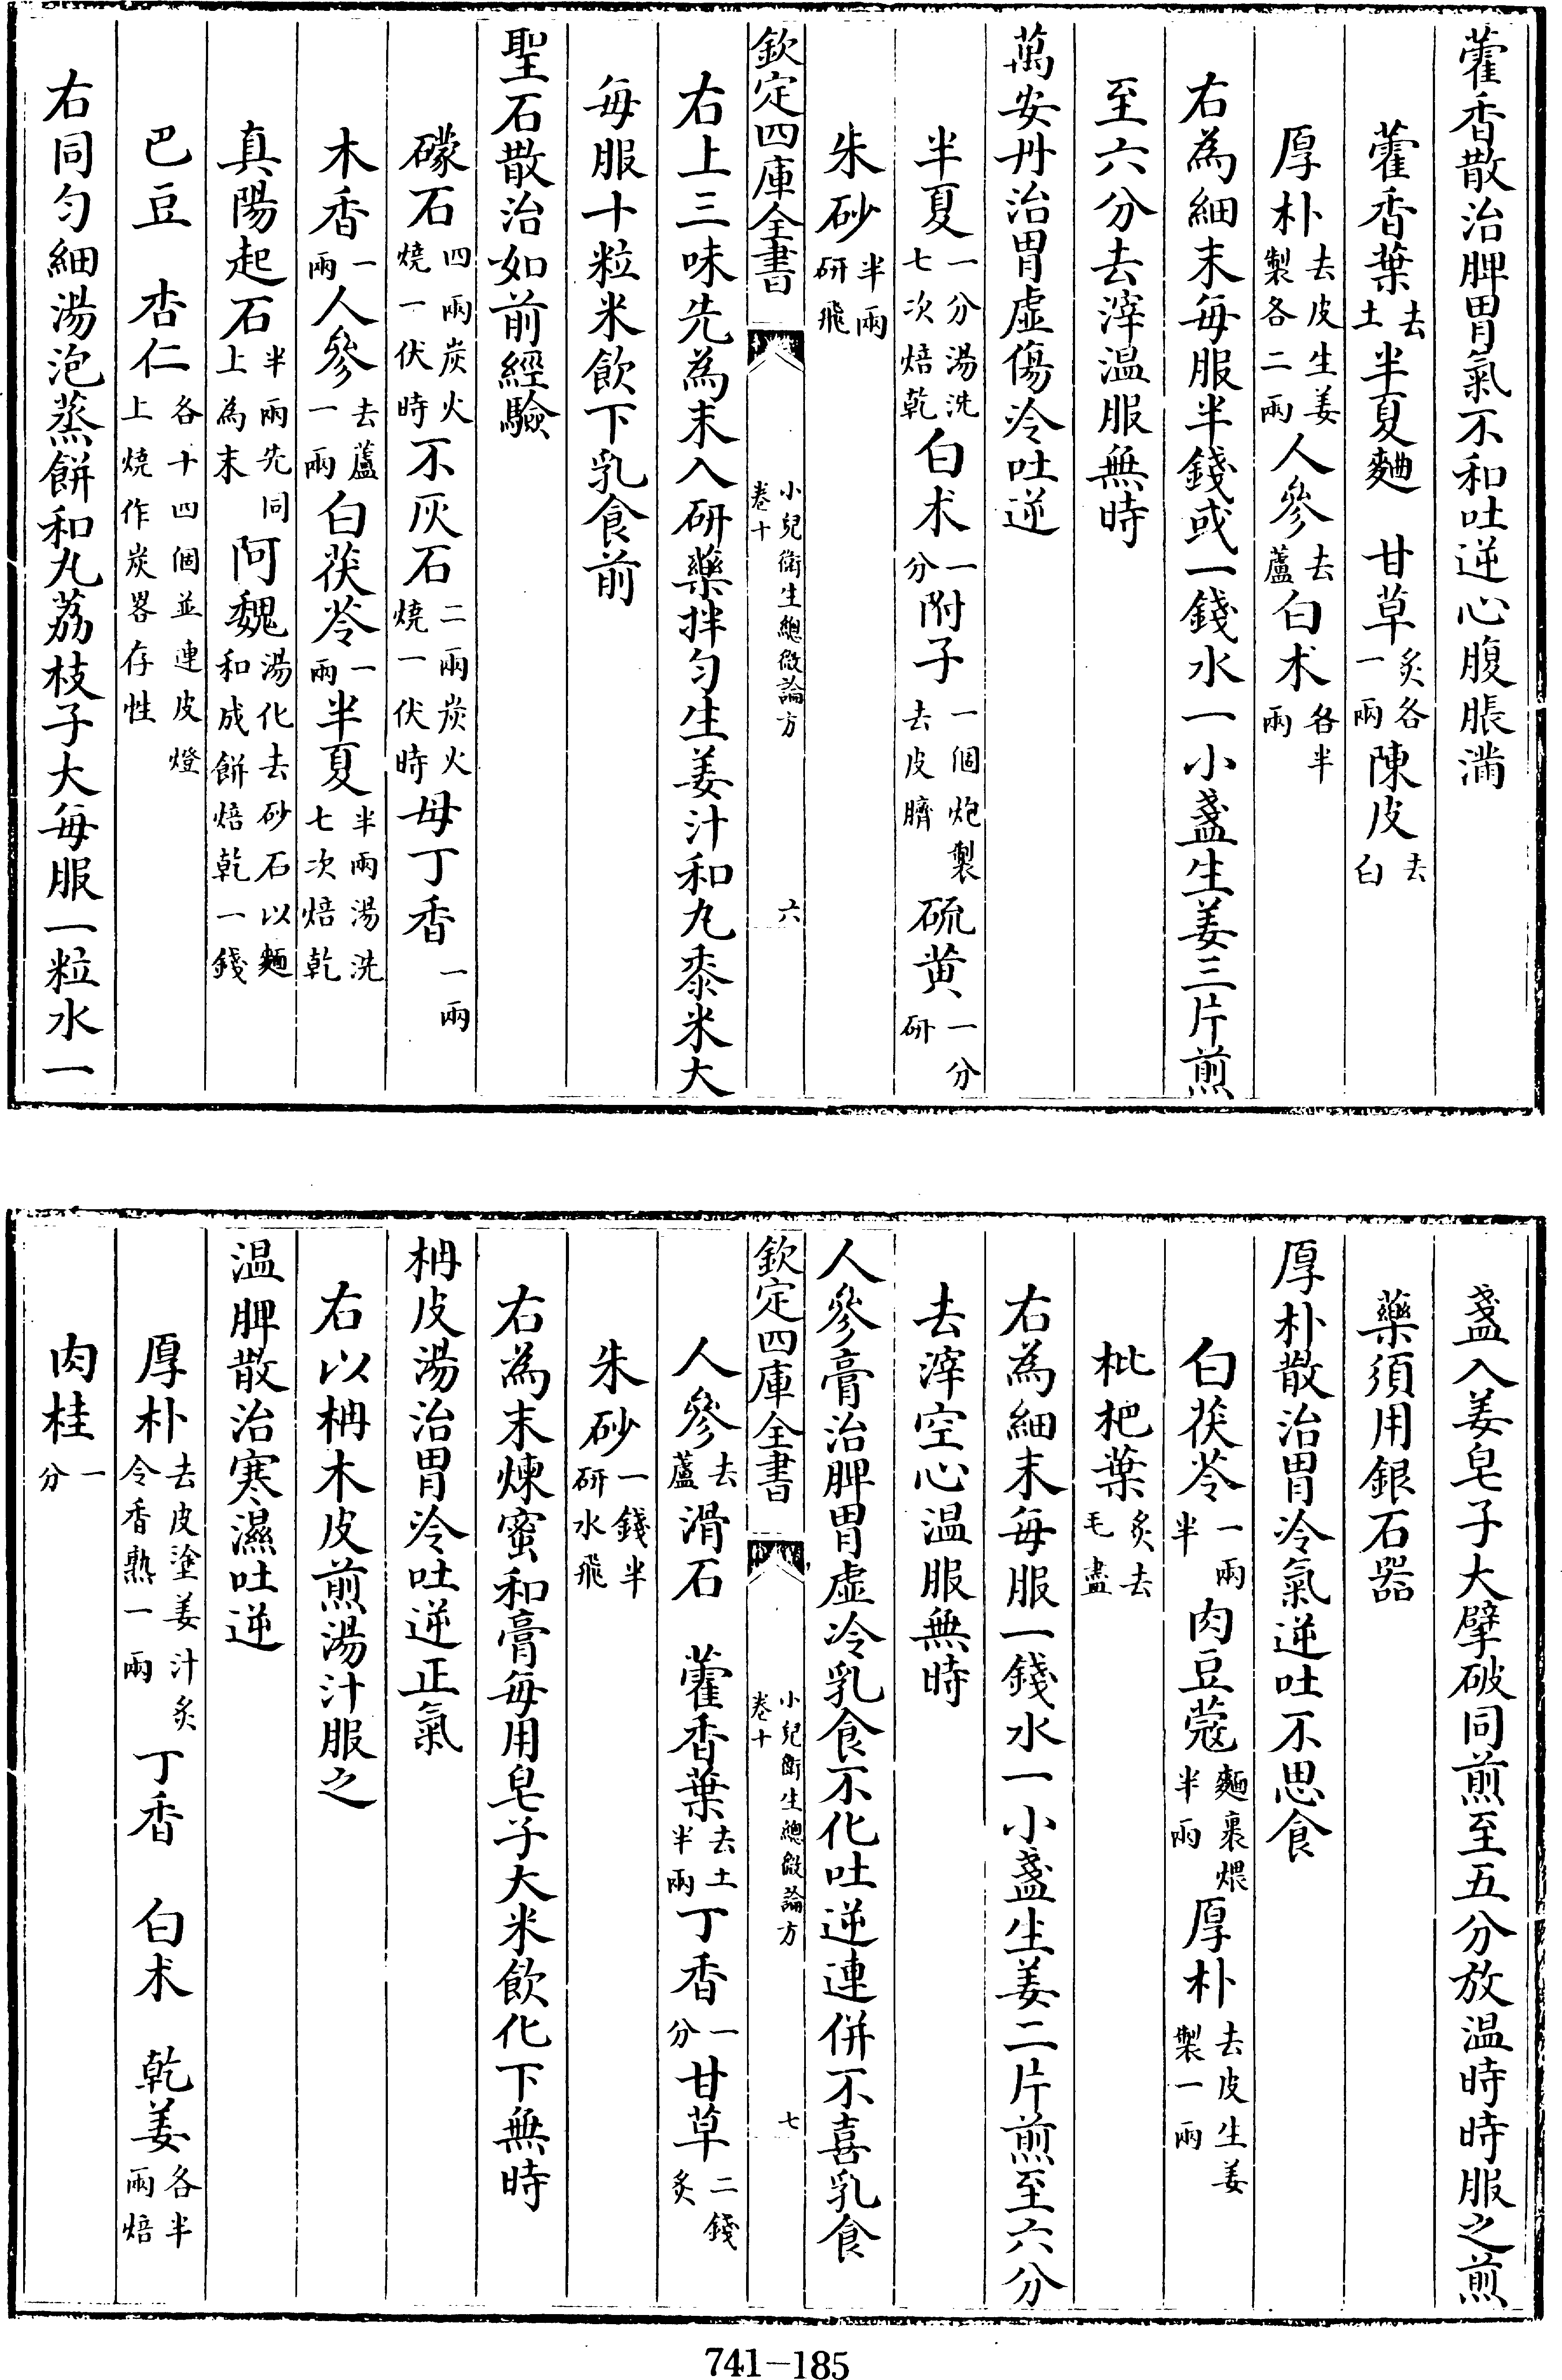 藿香散治脾胃氣不和吐逆心腹脹滿
藿香葉去土半夏麯 甘草炙各一兩陳皮去白
厚朴去皮生姜製各二兩人參去蘆白朮各半兩
右為細末每服半錢或一錢水一小盞生姜三片煎
至六分去滓温服無時
萬安丹治胃虛傷冷吐逆
半夏一分湯洗七次焙乾白朮一分附子一個炮製去皮臍硫黄一分研
朱砂半兩研飛
欽定四庫全書 小兒衛生總微論方卷十 六
右上三味先為末入研藥拌匀生姜汁和丸黍米大
每服十粒米飲下乳食前
聖石散治如前經驗
礞石四兩炭火燒一伏時不灰石二兩炭火燒一伏時母丁香一兩
木香一兩人參去蘆一兩白茯苓一兩半夏半兩湯洗七次焙乾
真陽起石半兩先同上為末阿魏湯化去砂石以麵和成餅焙乾一錢
巴豆 杏仁各十四個並連皮燈上燒作炭畧存性
右同匀細湯泡蒸餅和丸荔枝子大每服一粒水一
盞入姜皂子大擘破同煎至五分放温時時服之煎
藥須用銀石器
厚朴散治胃冷氣逆吐不思食
白茯苓一兩半 肉豆蔻麵裹煨半兩厚朴去皮生姜製一兩
枇杷葉炙去毛盡
右為細末每服一錢水一小盞生姜二片煎至六分
去滓空心温服無時
人參膏治脾胃虛冷乳食不化吐逆連併不喜乳食
欽定四庫全書 小兒衛生總微論方卷十 七
人參去蘆滑石 藿香葉去土半兩丁香一分甘草二錢炙
朱砂一錢半研水飛
右為末煉蜜和膏每用皂子大米飲化下無時
柟皮湯治胃冷吐逆正氣
右以柟木皮煎湯汁服之
温脾散治寒濕吐逆
厚朴去皮塗姜汁炙令香熟一兩丁香 白朮 乾姜各半兩焙
肉桂一分
741-185